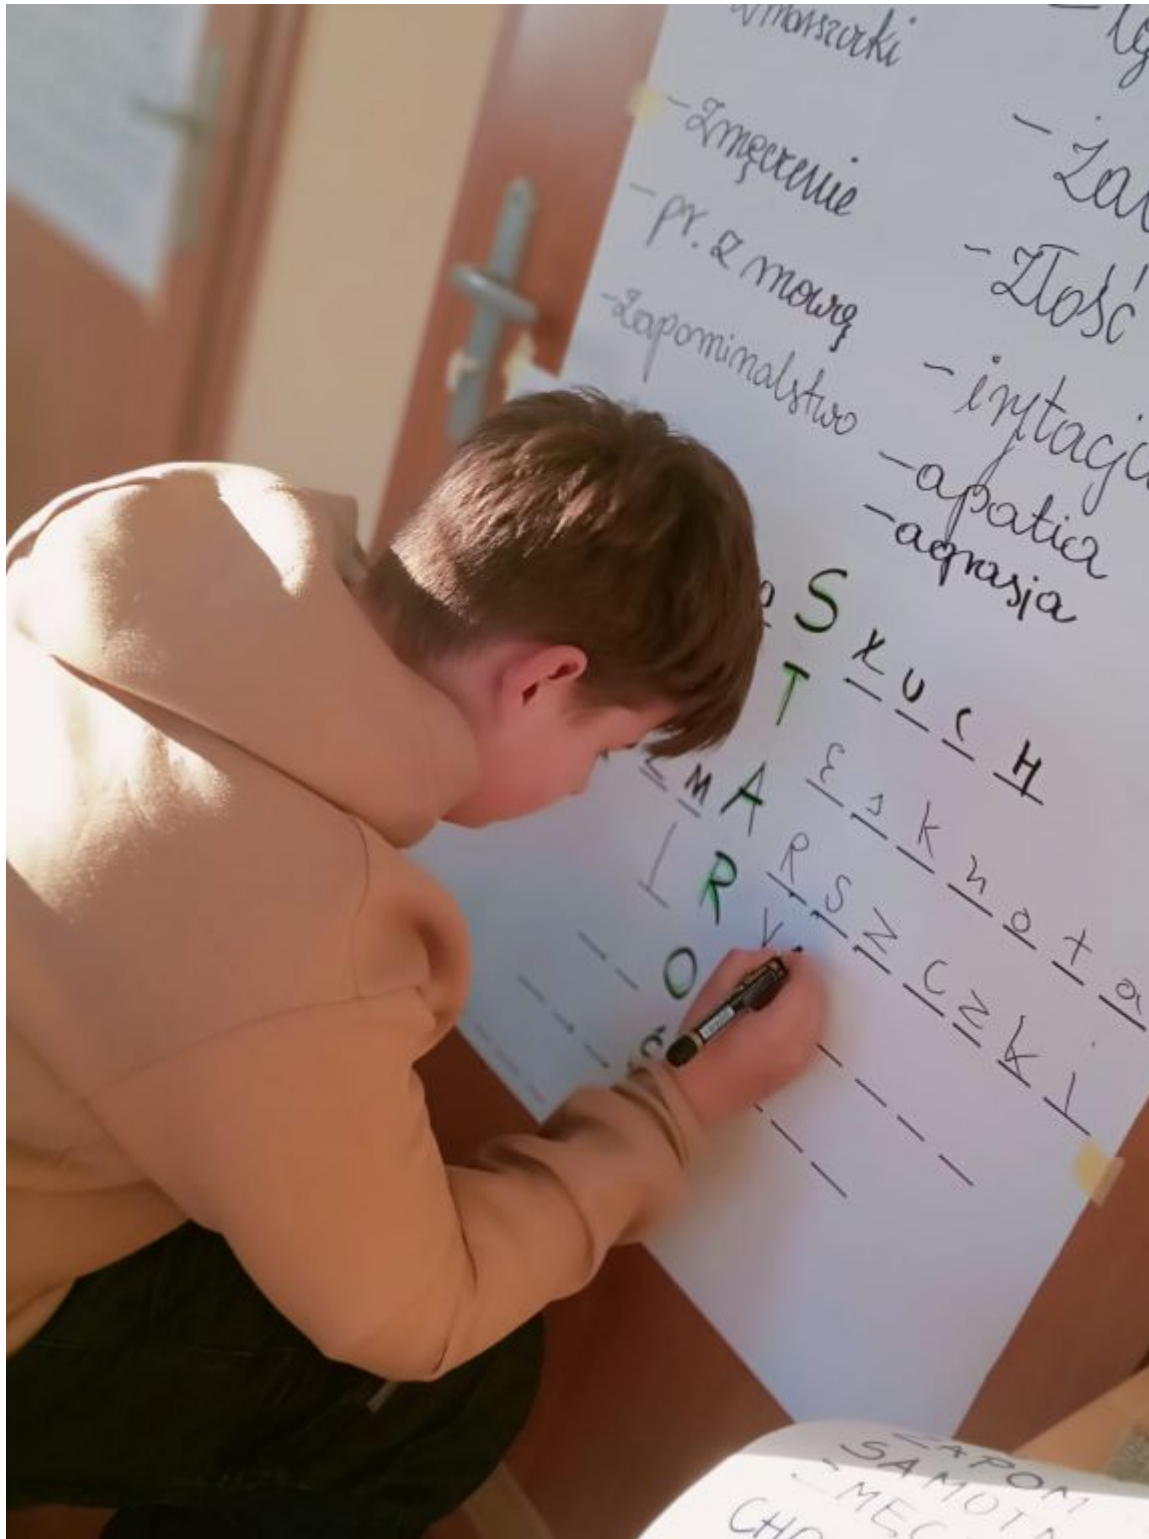 zmarszczki
- zmęczenie
- pr. z mową
- zapominalstwo
- żal
- złość
- irytacja
- apatia
- agrasja
SŁUCH
TĘsknota
ZMARSZCZKI
R
O
Ś
ZAPOM
SAMOTN
ZMĘC
CHO